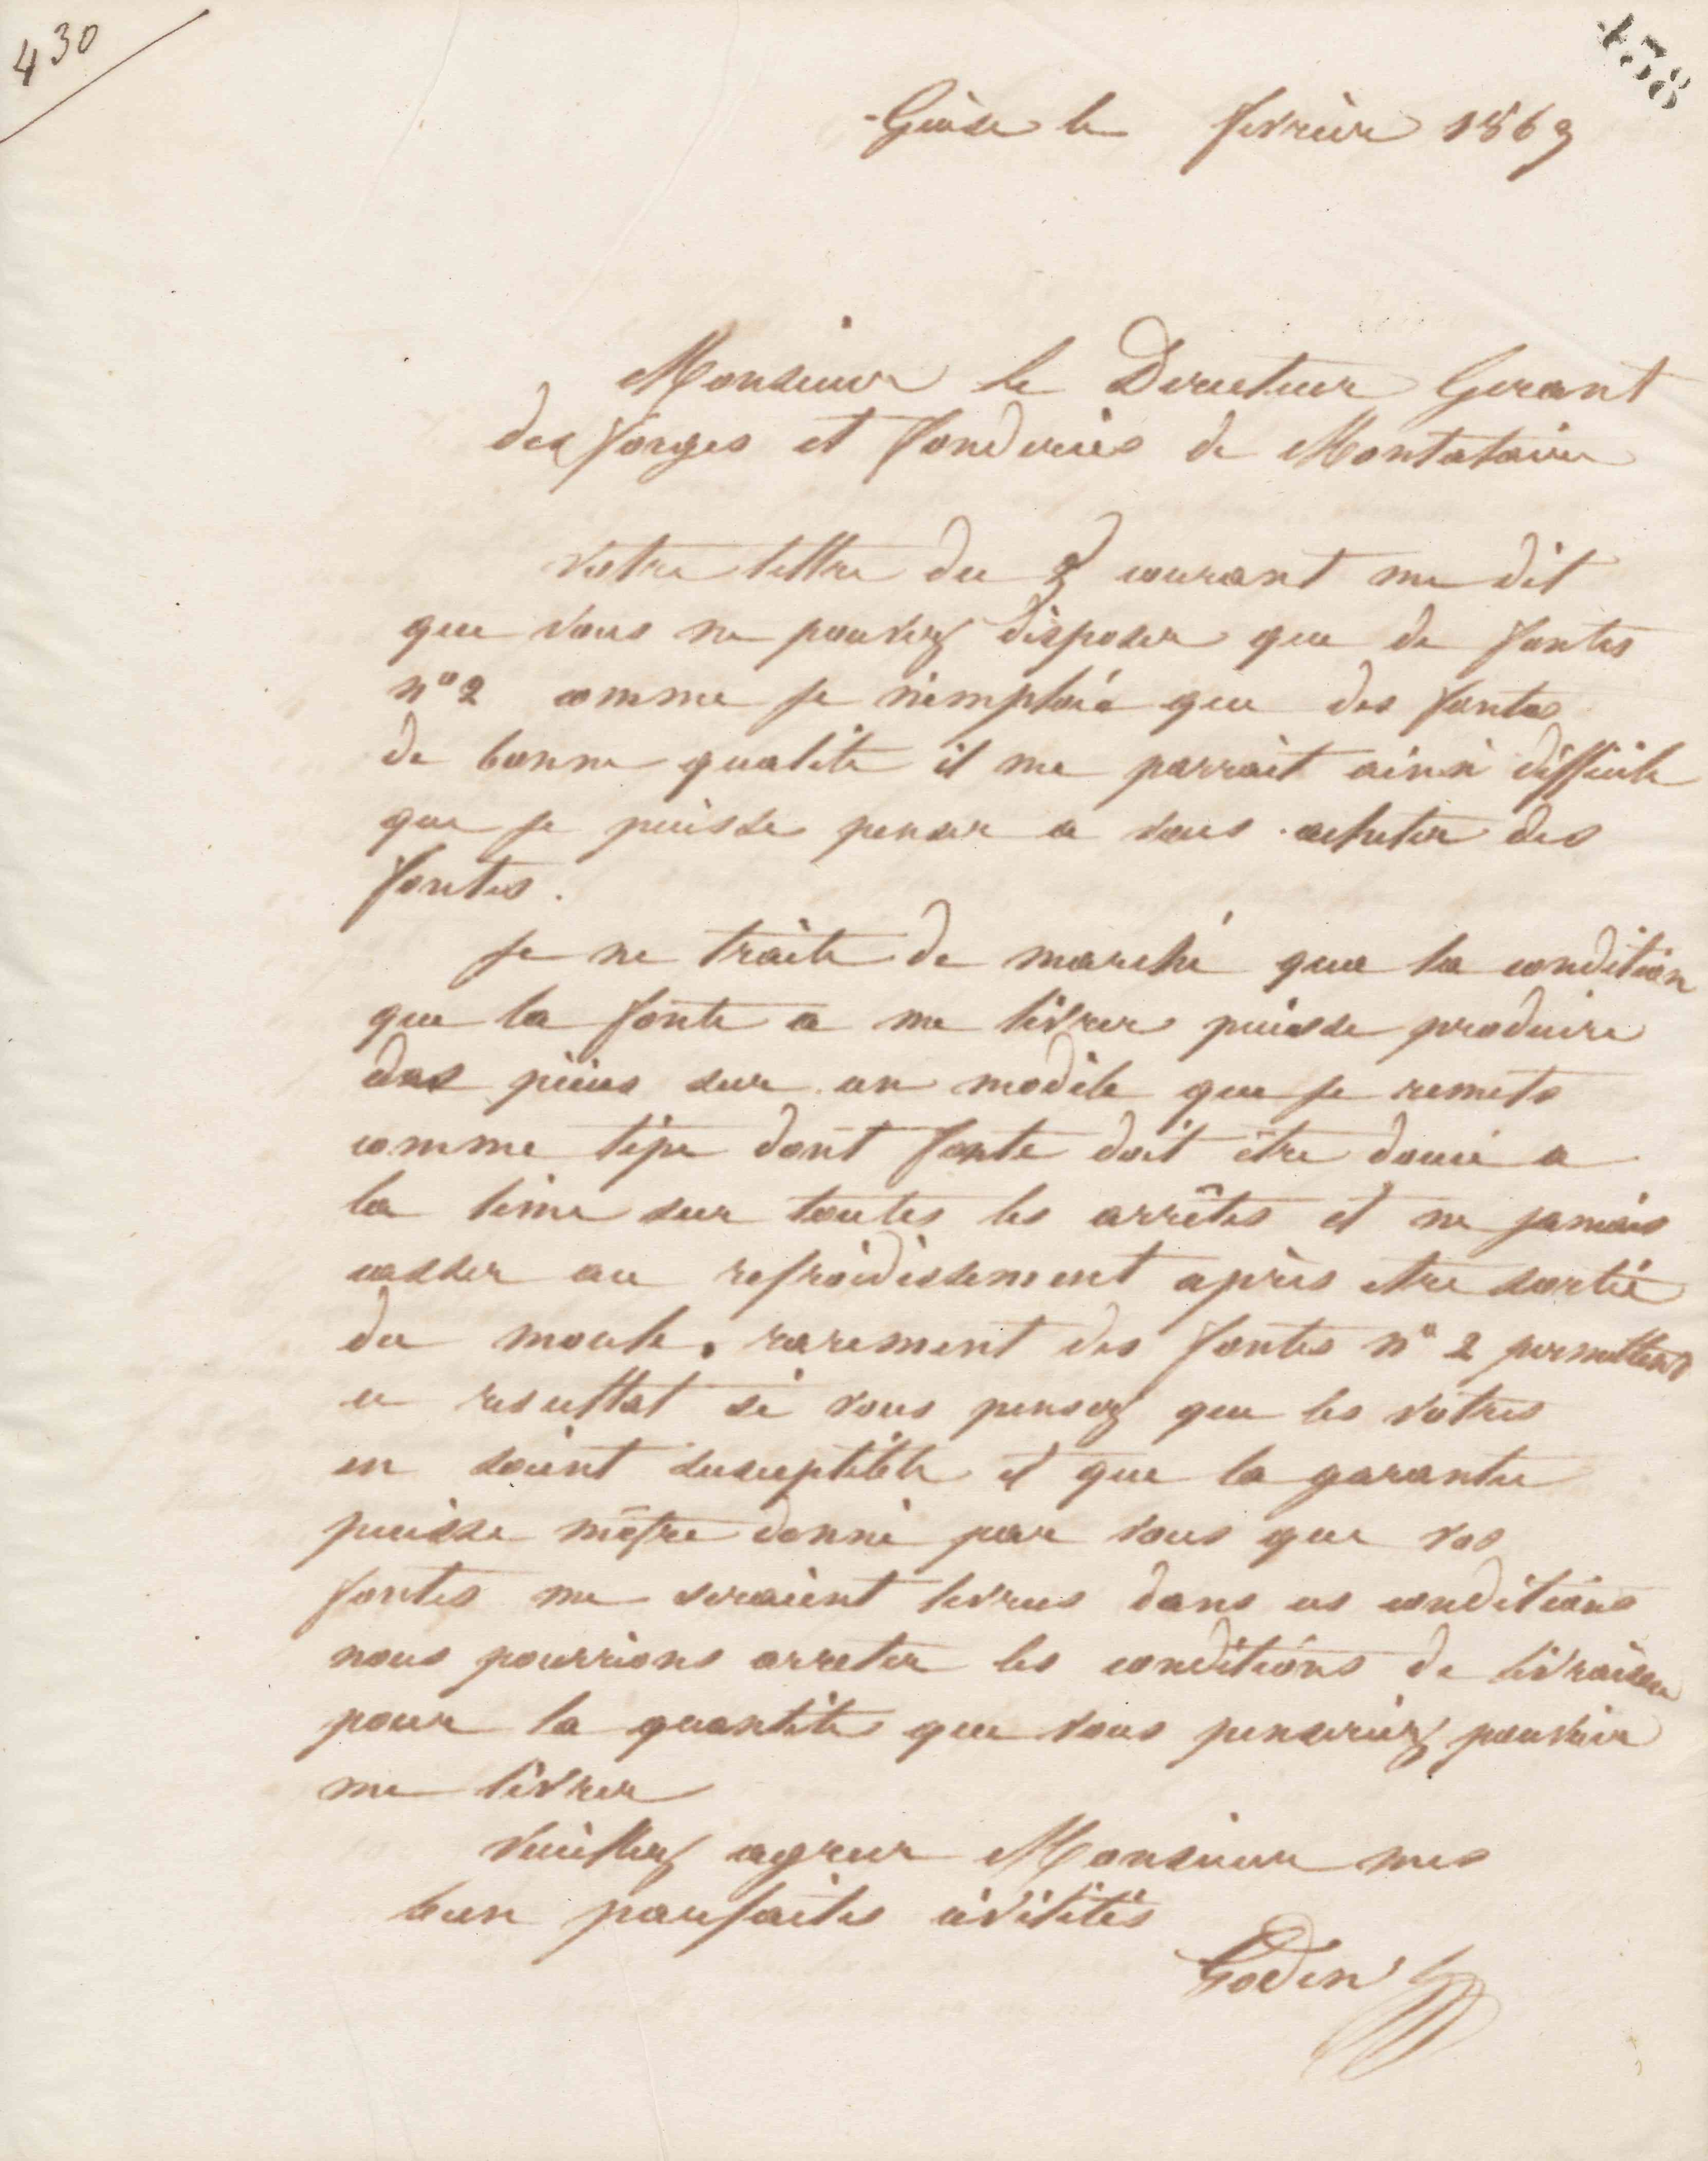 430
438
Guise le février 1863
Monsieur le Directeur Gerant
des forges et fonderies de Montataire
Votre lettre du 3 courant me dit
que vous ne pouvez disposer que de fontes
n° 2 comme je n'emploie que des fontes
de bonne qualité il me parrait ainsi difficile
que je puisse penser a vous acheter des
fontes.
Je ne traite de marché qua la condition
que la fonte a me livrer puisse produire
des pièces sur un modèle que je remets
comme tipe dont fonte doit être douce a
la lime sur toutes les arrêtes et ne jamais
casser au refroidissement après etre sortie
du moule. rarement des fontes n° 2 permettent
ce resultat si vous pensez que les votres
en soient susceptible et que la garantie
puisse m'être donné par vous que vos
fontes me seraient livrées dans ces conditions
nous pourrions arreter les conditions de livraison
pour la quantité que vous penseriez pouvoir
me livrer
Veuillez agreer Monsieur mes
bien parfaites civilités
Godin